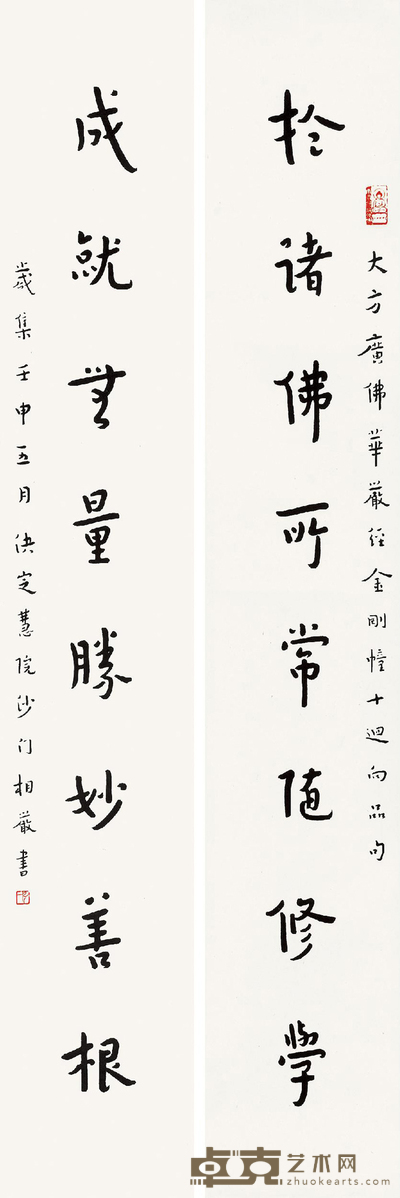 大方廣佛華嚴經金剛幢十迴向品句
於諸佛所常隨修學
成就無量勝妙善根
歲集壬申五月決定慧院沙门相嚴書
卓克艺术网
zhuokearts.com